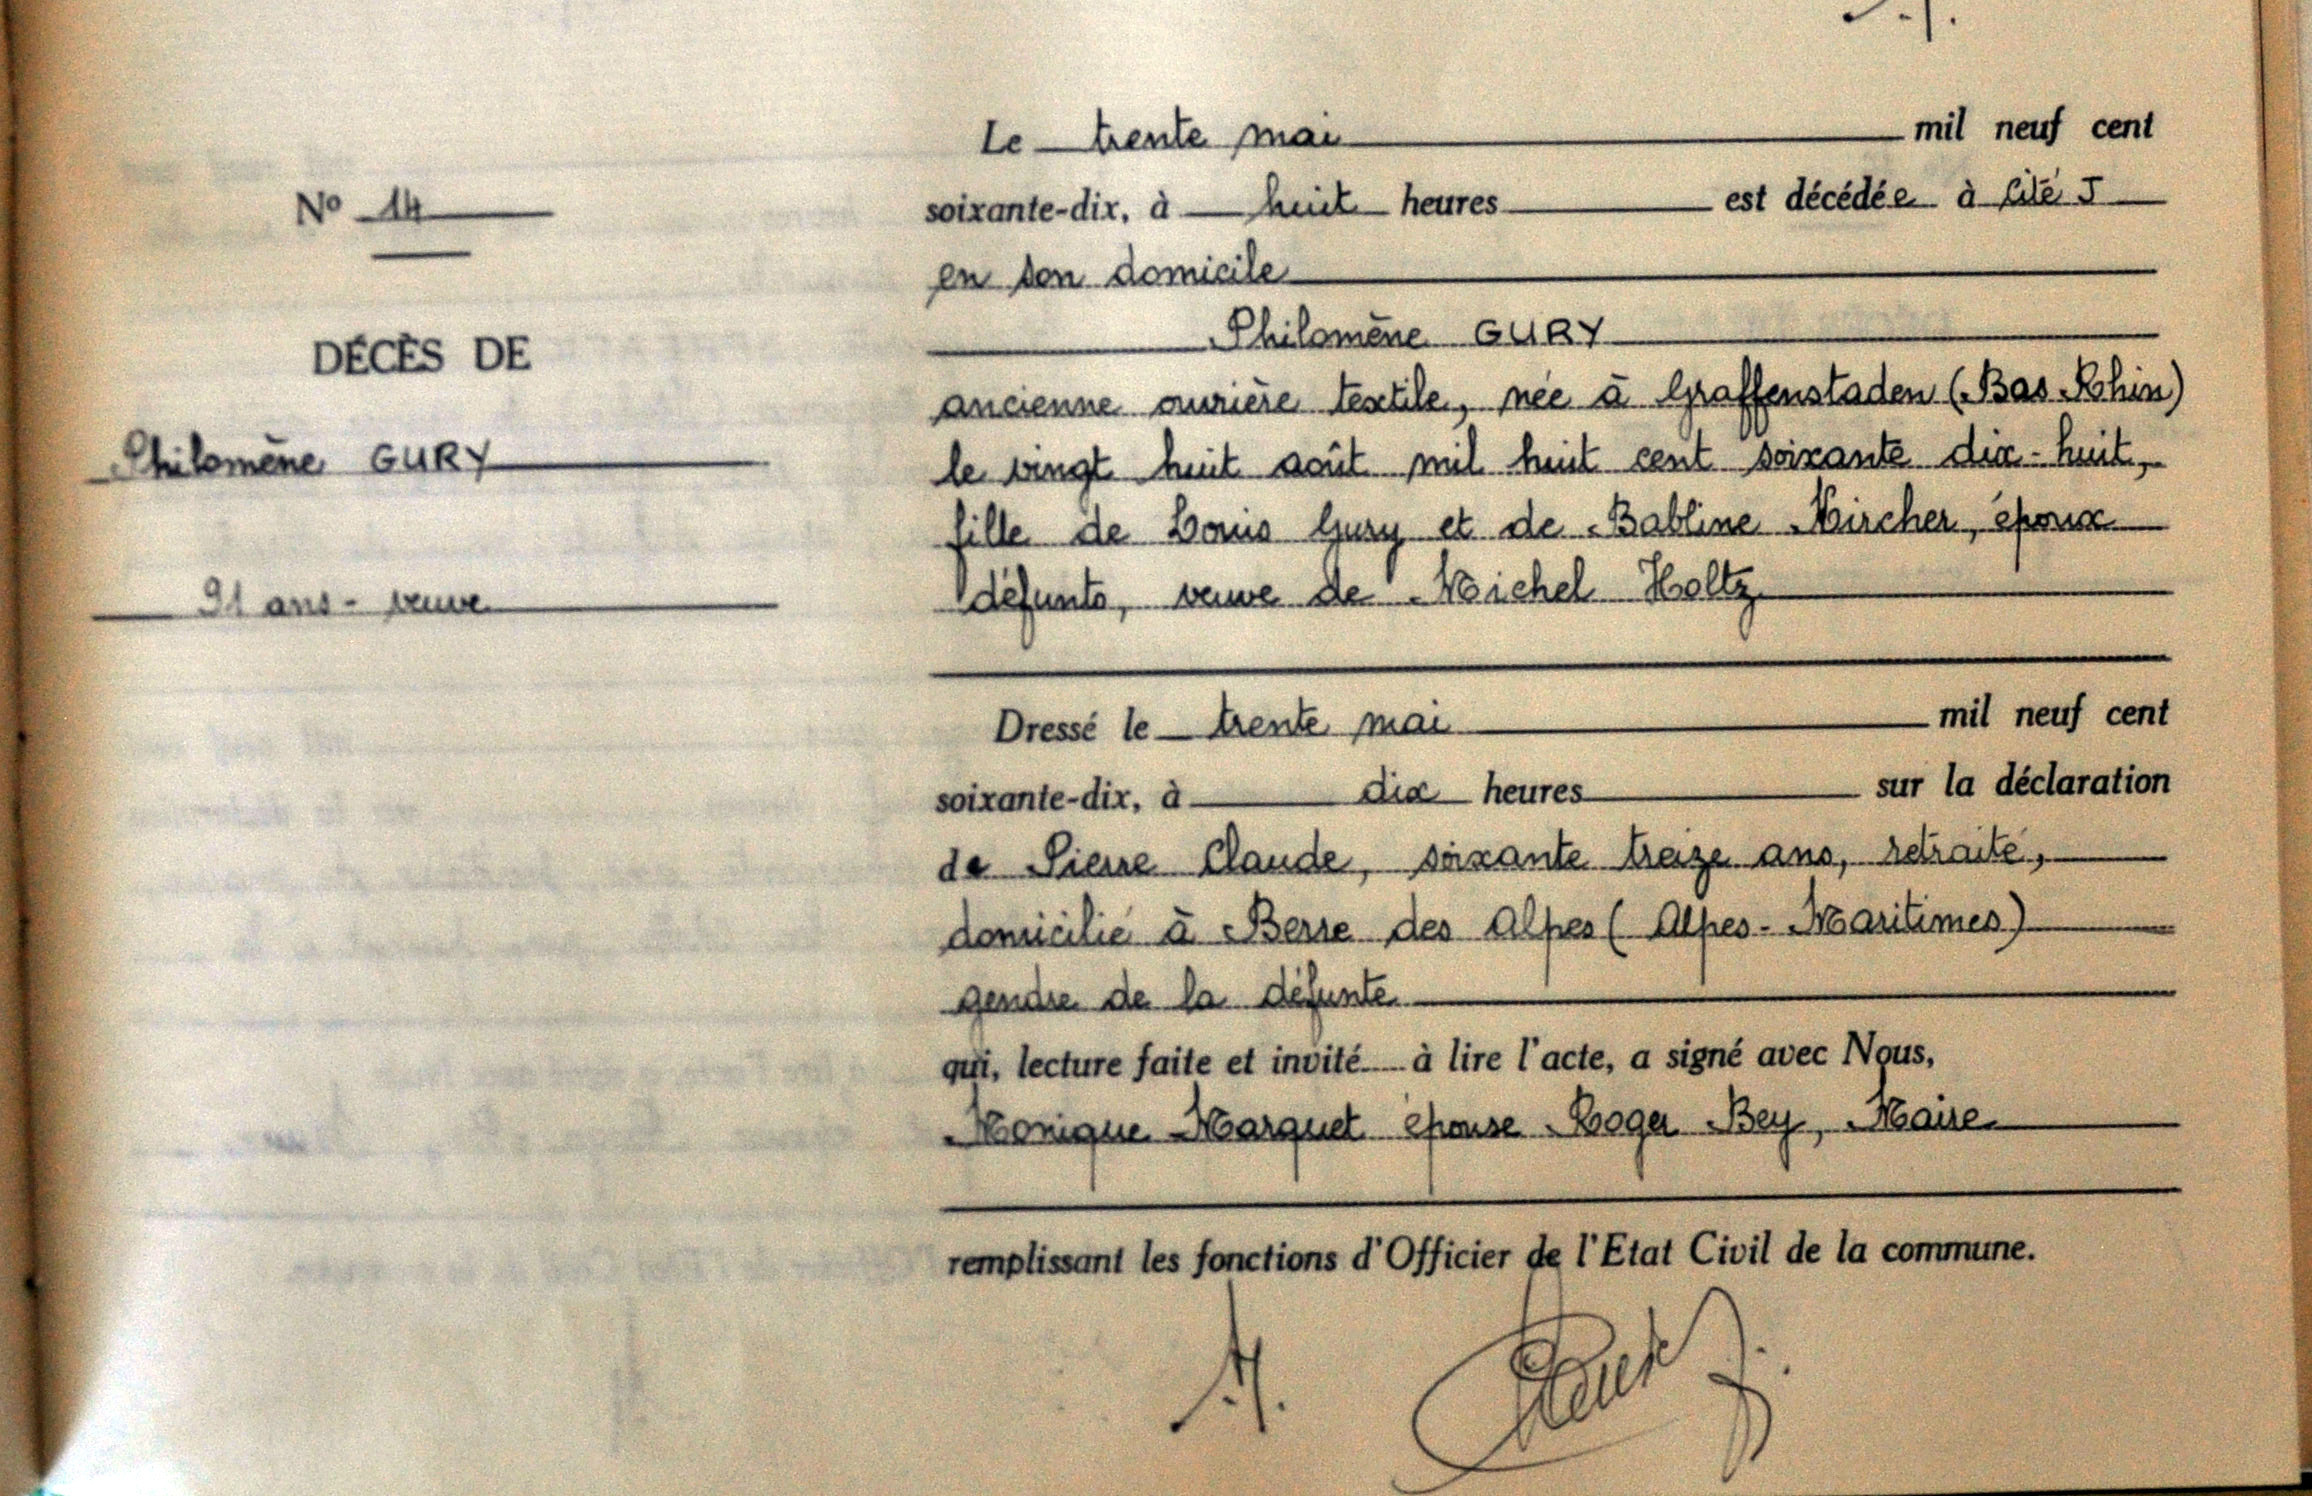 Nº 14
DÉCÈS DE
Philomène GURY
91 ans - veuve
Le trente mai mil neuf cent
soixante-dix, à huit heures est décédée à Cité J
en son domicile
Philomène GURY
ancienne ouvrière textile, née à Graffenstaden (Bas Rhin)
le vingt huit août mil huit cent soixante dix-huit,
fille de Louis Gury et de Babline Kircher, époux
défunts, veuve de Michel Holtz
Dressé le trente mai mil neuf cent
soixante-dix, à dix heures sur la déclaration
de Pierre Claude, soixante treize ans, retraité,
domicilié à Berre des Alpes (Alpes-Maritimes)
gendre de la défunte
qui, lecture faite et invité à lire l'acte, a signé avec Nous,
Monique Marquet épouse Roger Bey, Maire
remplissant les fonctions d'Officier de l'Etat Civil de la commune.